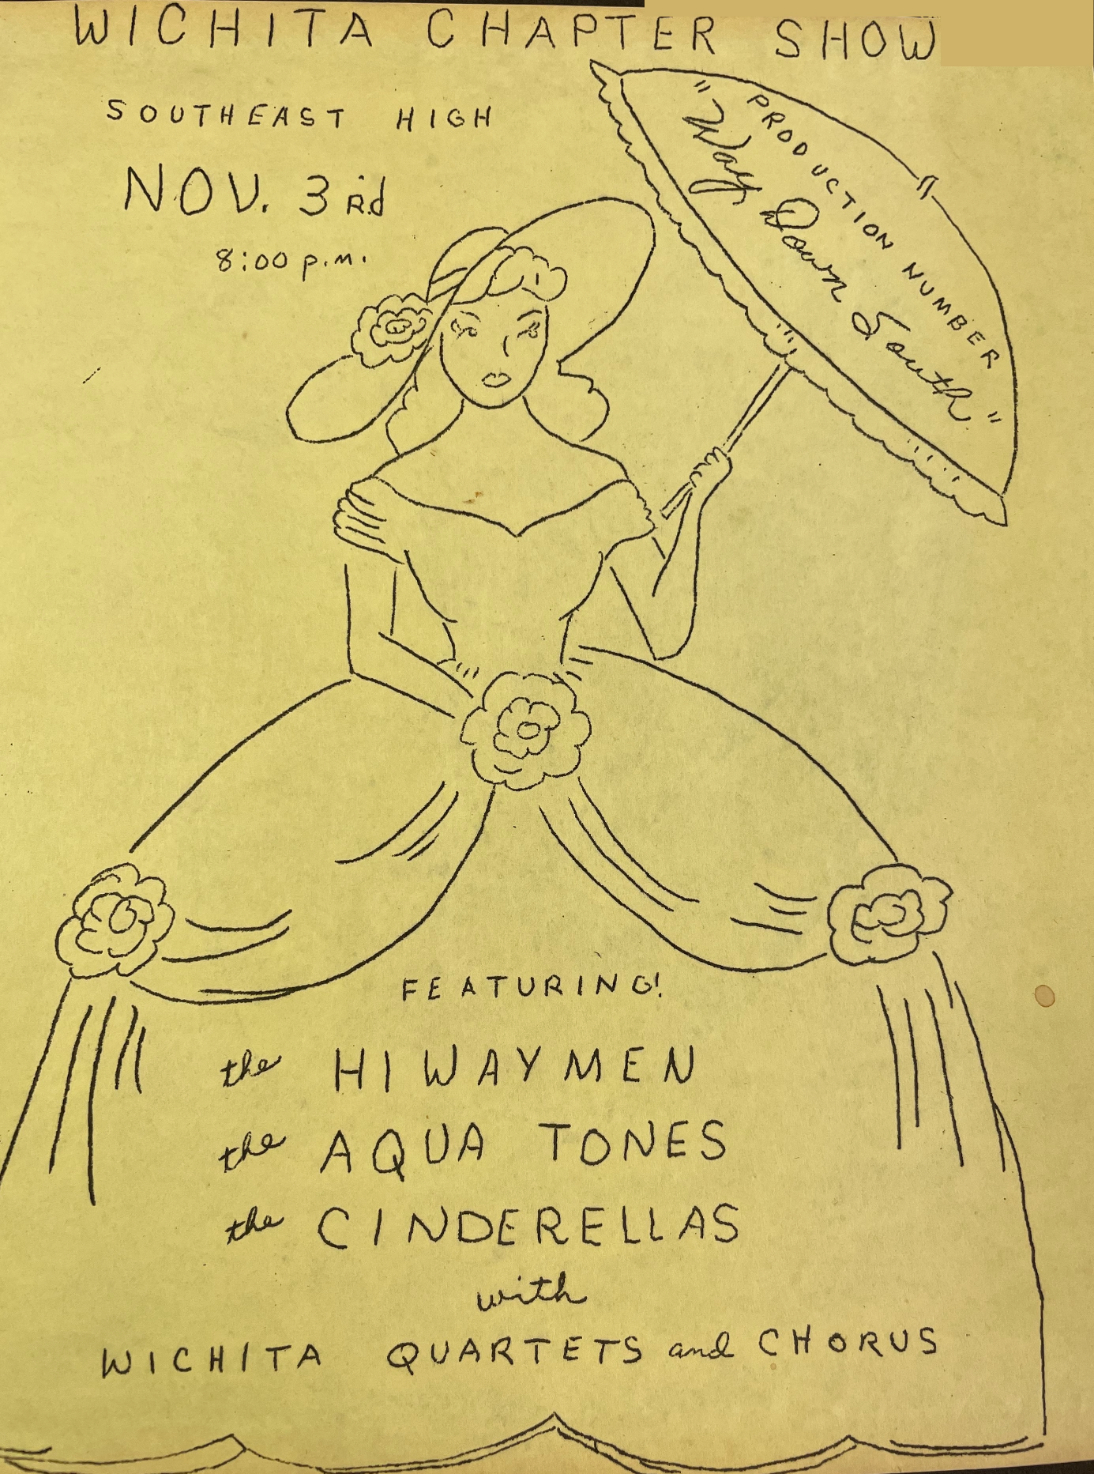 WICHITA CHAPTER SHOW
SOUTHEAST HIGH
NOV. 3rd
8:00 p.m.
PRODUCTION NUMBER
"Way Down South"
FEATURING!
the HIWAYMEN
the AQUA TONES
the CINDERELLAS
with
WICHITA QUARTETS and CHORUS